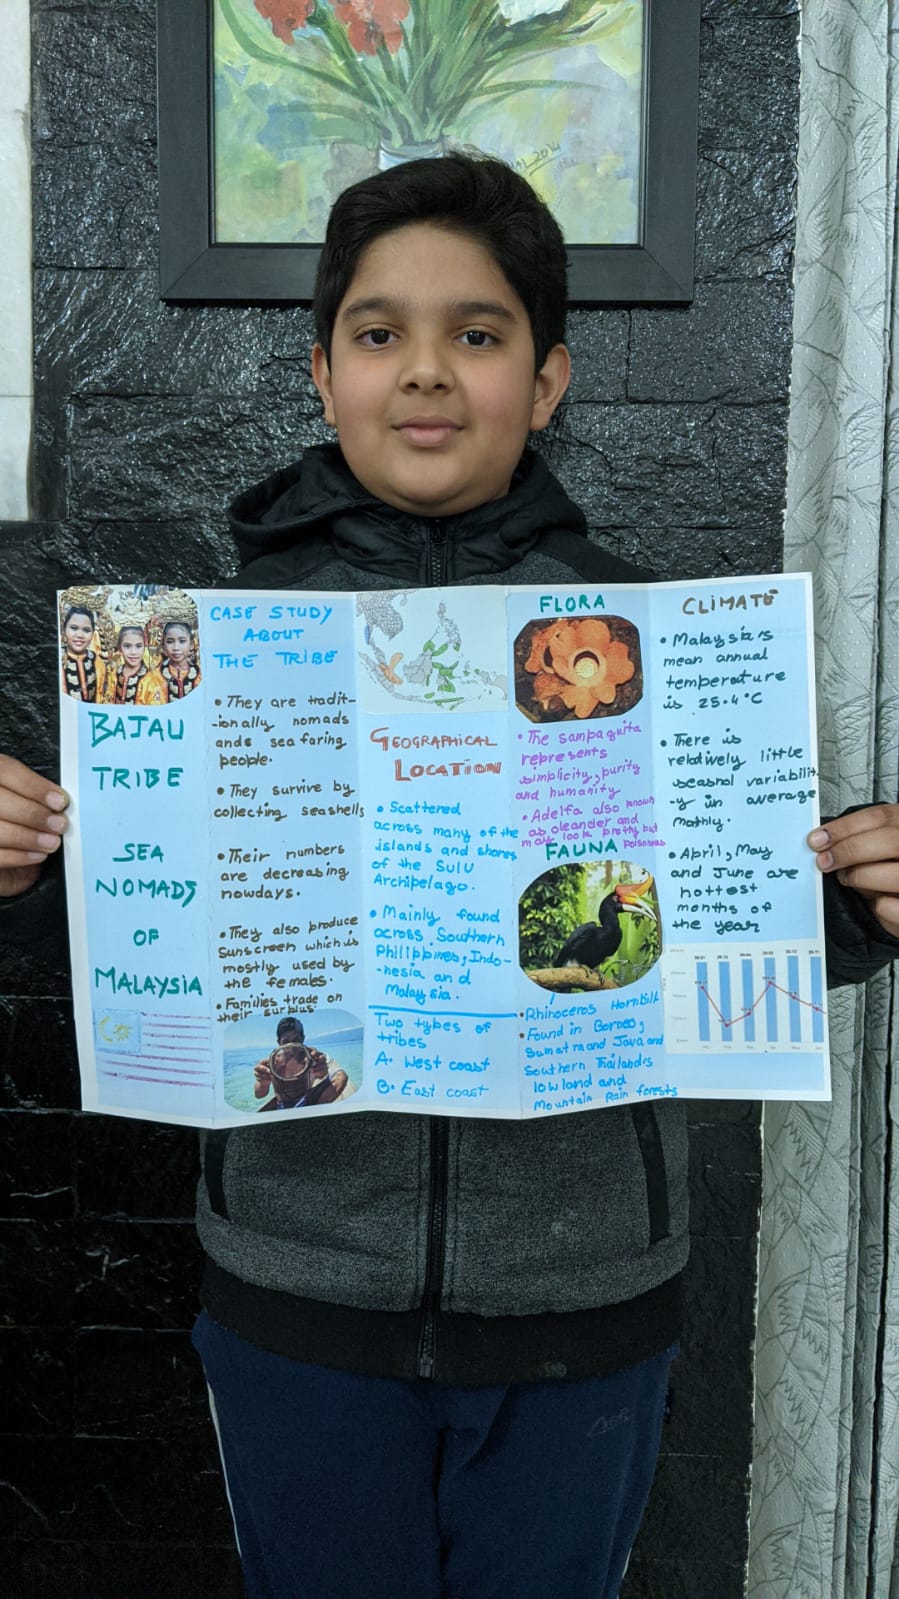 BAJAU
TRIBE
SEA
NOMADS
OF
MALAYSIA
CASE STUDY
ABOUT
THE TRIBE
• They are tradit-
-ionally nomads
ands sea faring
people.
• They survive by
collecting seashells
• Their numbers
are decreasing
nowdays.
• They also produce
Sunscreen which is
mostly used by
the females.
• Families trade on
their surplus
GEOGRAPHICAL
LOCATION
• Scattered
across many of the
islands and shores
of the Sulu
Archipelago.
• Mainly found
across Southern
Philippines, Indo-
-nesia and
Malaysia.
Two types of
tribes
A. West coast
B. East coast
FLORA
• The sampaguita
represents
simplicity, purity
and humanity
• Adelfa also known
as oleander and
may look pretty but
poisonous
FAUNA
• Rhinoceros Hornbill
• Found in Borneo,
Sumatra and Java and
Southern Thailand's
lowland and
Mountain Rain forests
CLIMATE
• Malaysia's
mean annual
temperature
is 25.4°C
• There is
relatively little
seasnol variabilit-
-y in average
mothly.
• April, May
and June are
hottest
months of
the year